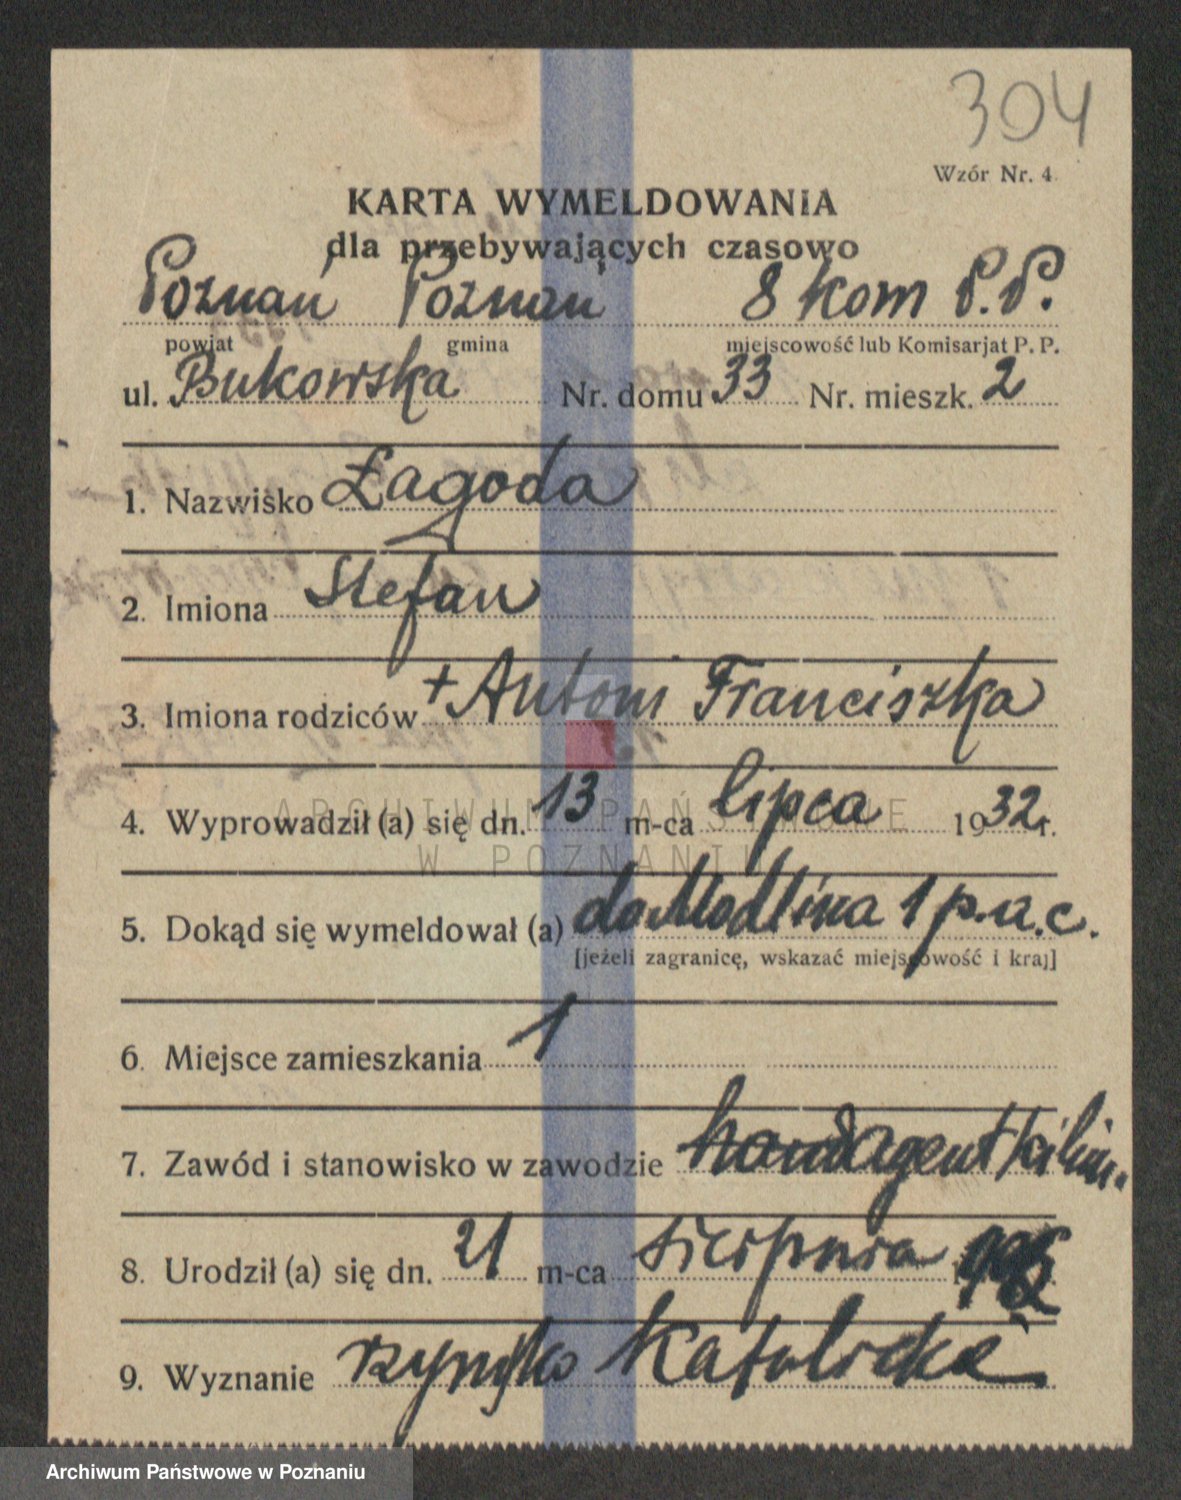 304
Wzór Nr. 4
KARTA WYMELDOWANIA
dla przebywających czasowo
Poznań Poznań 8 Kom P.P.
powiat gmina miejscowość lub Komisarjat P. P.
ul. Bukowska Nr. domu 33 Nr. mieszk. 2
1. Nazwisko Łagoda
2. Imiona Stefan
3. Imiona rodziców + Antoni Franciszka
4. Wyprowadził (a) się dn. 13 m-ca lipca 1932 r.
ARCHIWUM PAŃSTWOWE
W POZNANIU
5. Dokąd się wymeldował (a) do Modlina 1 p.a.c.
[jeżeli zagranicę, wskazać miejscowość i kraj]
6. Miejsce zamieszkania 1
7. Zawód i stanowisko w zawodzie agent kilim.
8. Urodził (a) się dn. 21 m-ca sierpnia
9. Wyznanie rzymsko Katolickie
Archiwum Państwowe w Poznaniu